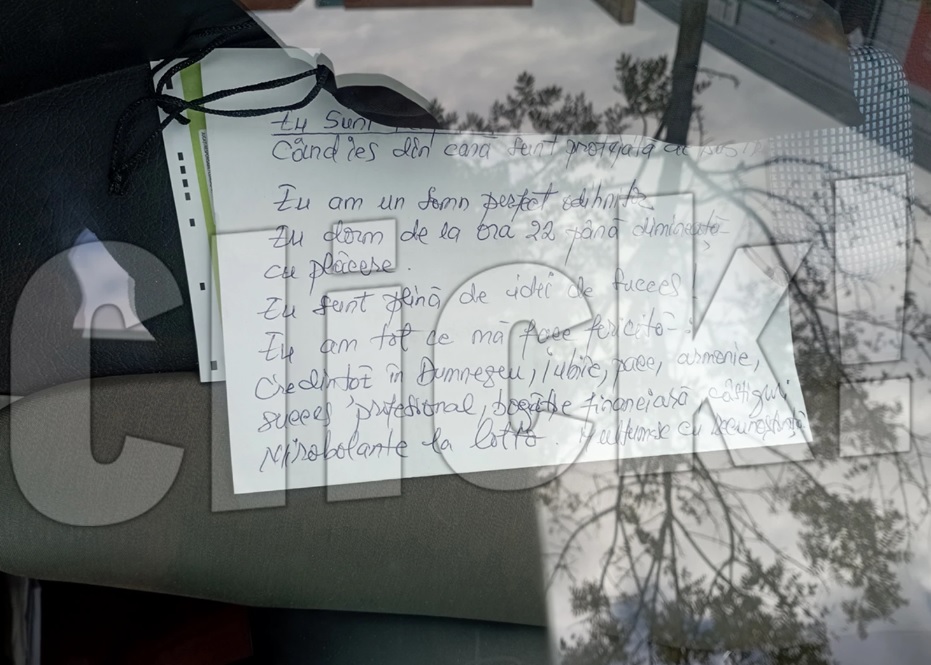 Eu Sunt
Când ies din casa sunt protejata de
Eu am un somn perfect odihnitor
Eu dorm de la ora 22 până dimineață
cu plăcere.
Eu sunt plină de idei de succes!
Eu am tot ce mă face fericită:
Credință în Dumnezeu, iubire, pace, armonie,
succes profesional, financiară câștiguri
mirobolante la lotto. cu recunoștință
Click!